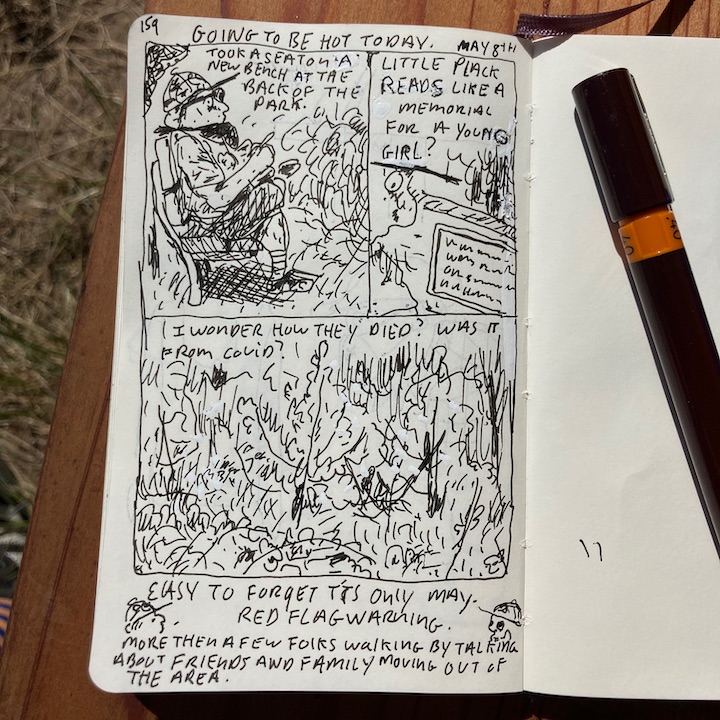 159
GOING TO BE HOT TODAY.
MAY 8TH
TOOK A SEAT ON A
NEW BENCH AT THE
BACK OF THE
PARK.
LITTLE PLACK
READS LIKE A
MEMORIAL
FOR A YOUNG
GIRL?
I WONDER HOW THEY DIED? WAS IT
FROM COVID?
EASY TO FORGET IT'S ONLY MAY.
RED FLAG WARNING.
MORE THEN A FEW FOLKS WALKING BY TALKING
ABOUT FRIENDS AND FAMILY MOVING OUT OF
THE AREA.